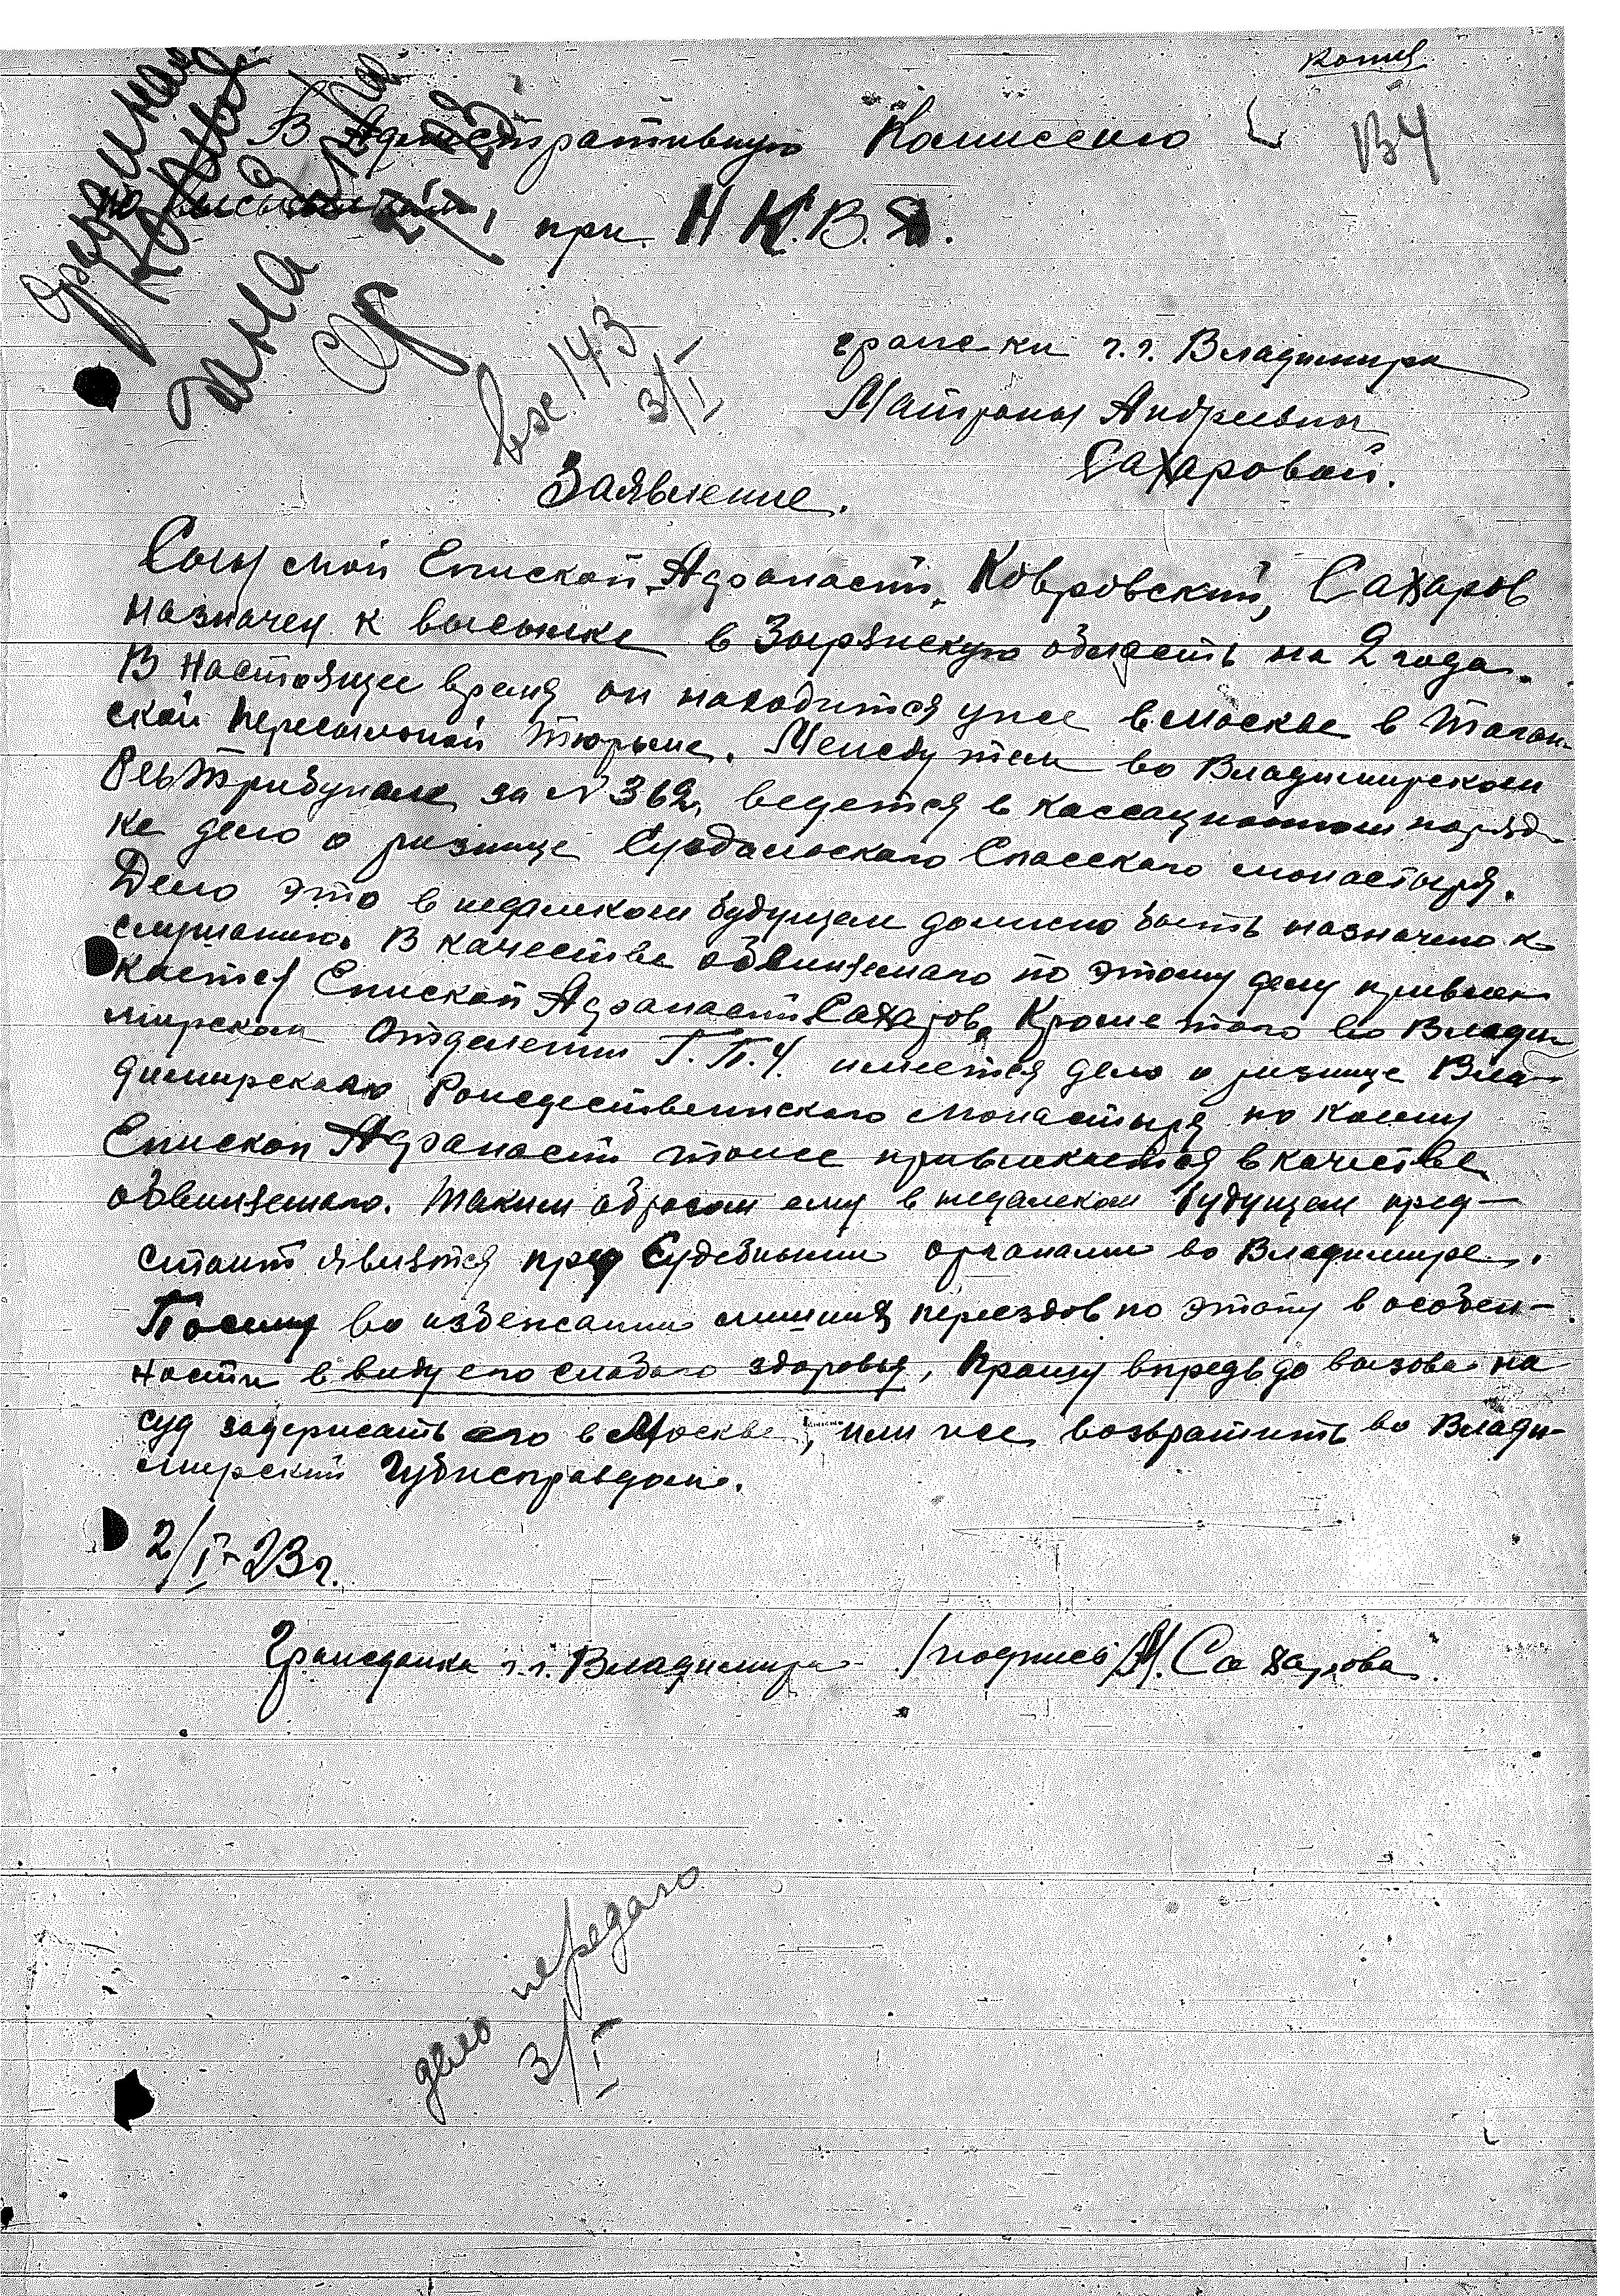 копия
В Административную Комиссию
В4
по высылкам, при Н.К.В.Д.
дана
вх 143
3/I
граж-ки г.г. Владимира
Матроны Андреевны
Сахаровой.
Заявление.
Сын мой Епископ Афанасий, Ковровский, Сахаров
назначен к высылке в Зырянскую область на 2 года.
В настоящее время он находится уже в Москве в Таган-
ской пересыльной тюрьме. Между тем во Владимирском
РевТрибунале за № 362, ведется в кассационном поряд-
ке дело о ризнице Суздальскаго Спасскаго монастыря.
Дело это в недалеком будущем должно быть назначено к
слушанию. В качестве обвиняемаго по этому делу привле-
кается Епископ Афанасий Сахаров. Кроме того во Влади-
мирском Отделении Г.П.У. имеется дело о ризнице Вла-
димирскаго Рождественскаго монастыря по коему
Епископ Афанасий тоже привлекается в качестве
обвиняемаго. Таким образом ему в недалеком будущем пред-
стоит явится пред Судебными органами во Владимире.
Посему во избежании лишних переездов по этапу в особен-
ности в виду его слабаго здоровья, прошу впредь до вызова на
суд задержать его в Москве, или же возвратить во Влади-
мирский Губисправдом.
2/I-23г.
Гражданка г.г. Владимира /подпись/ М. Сахарова
дело передано
3/I